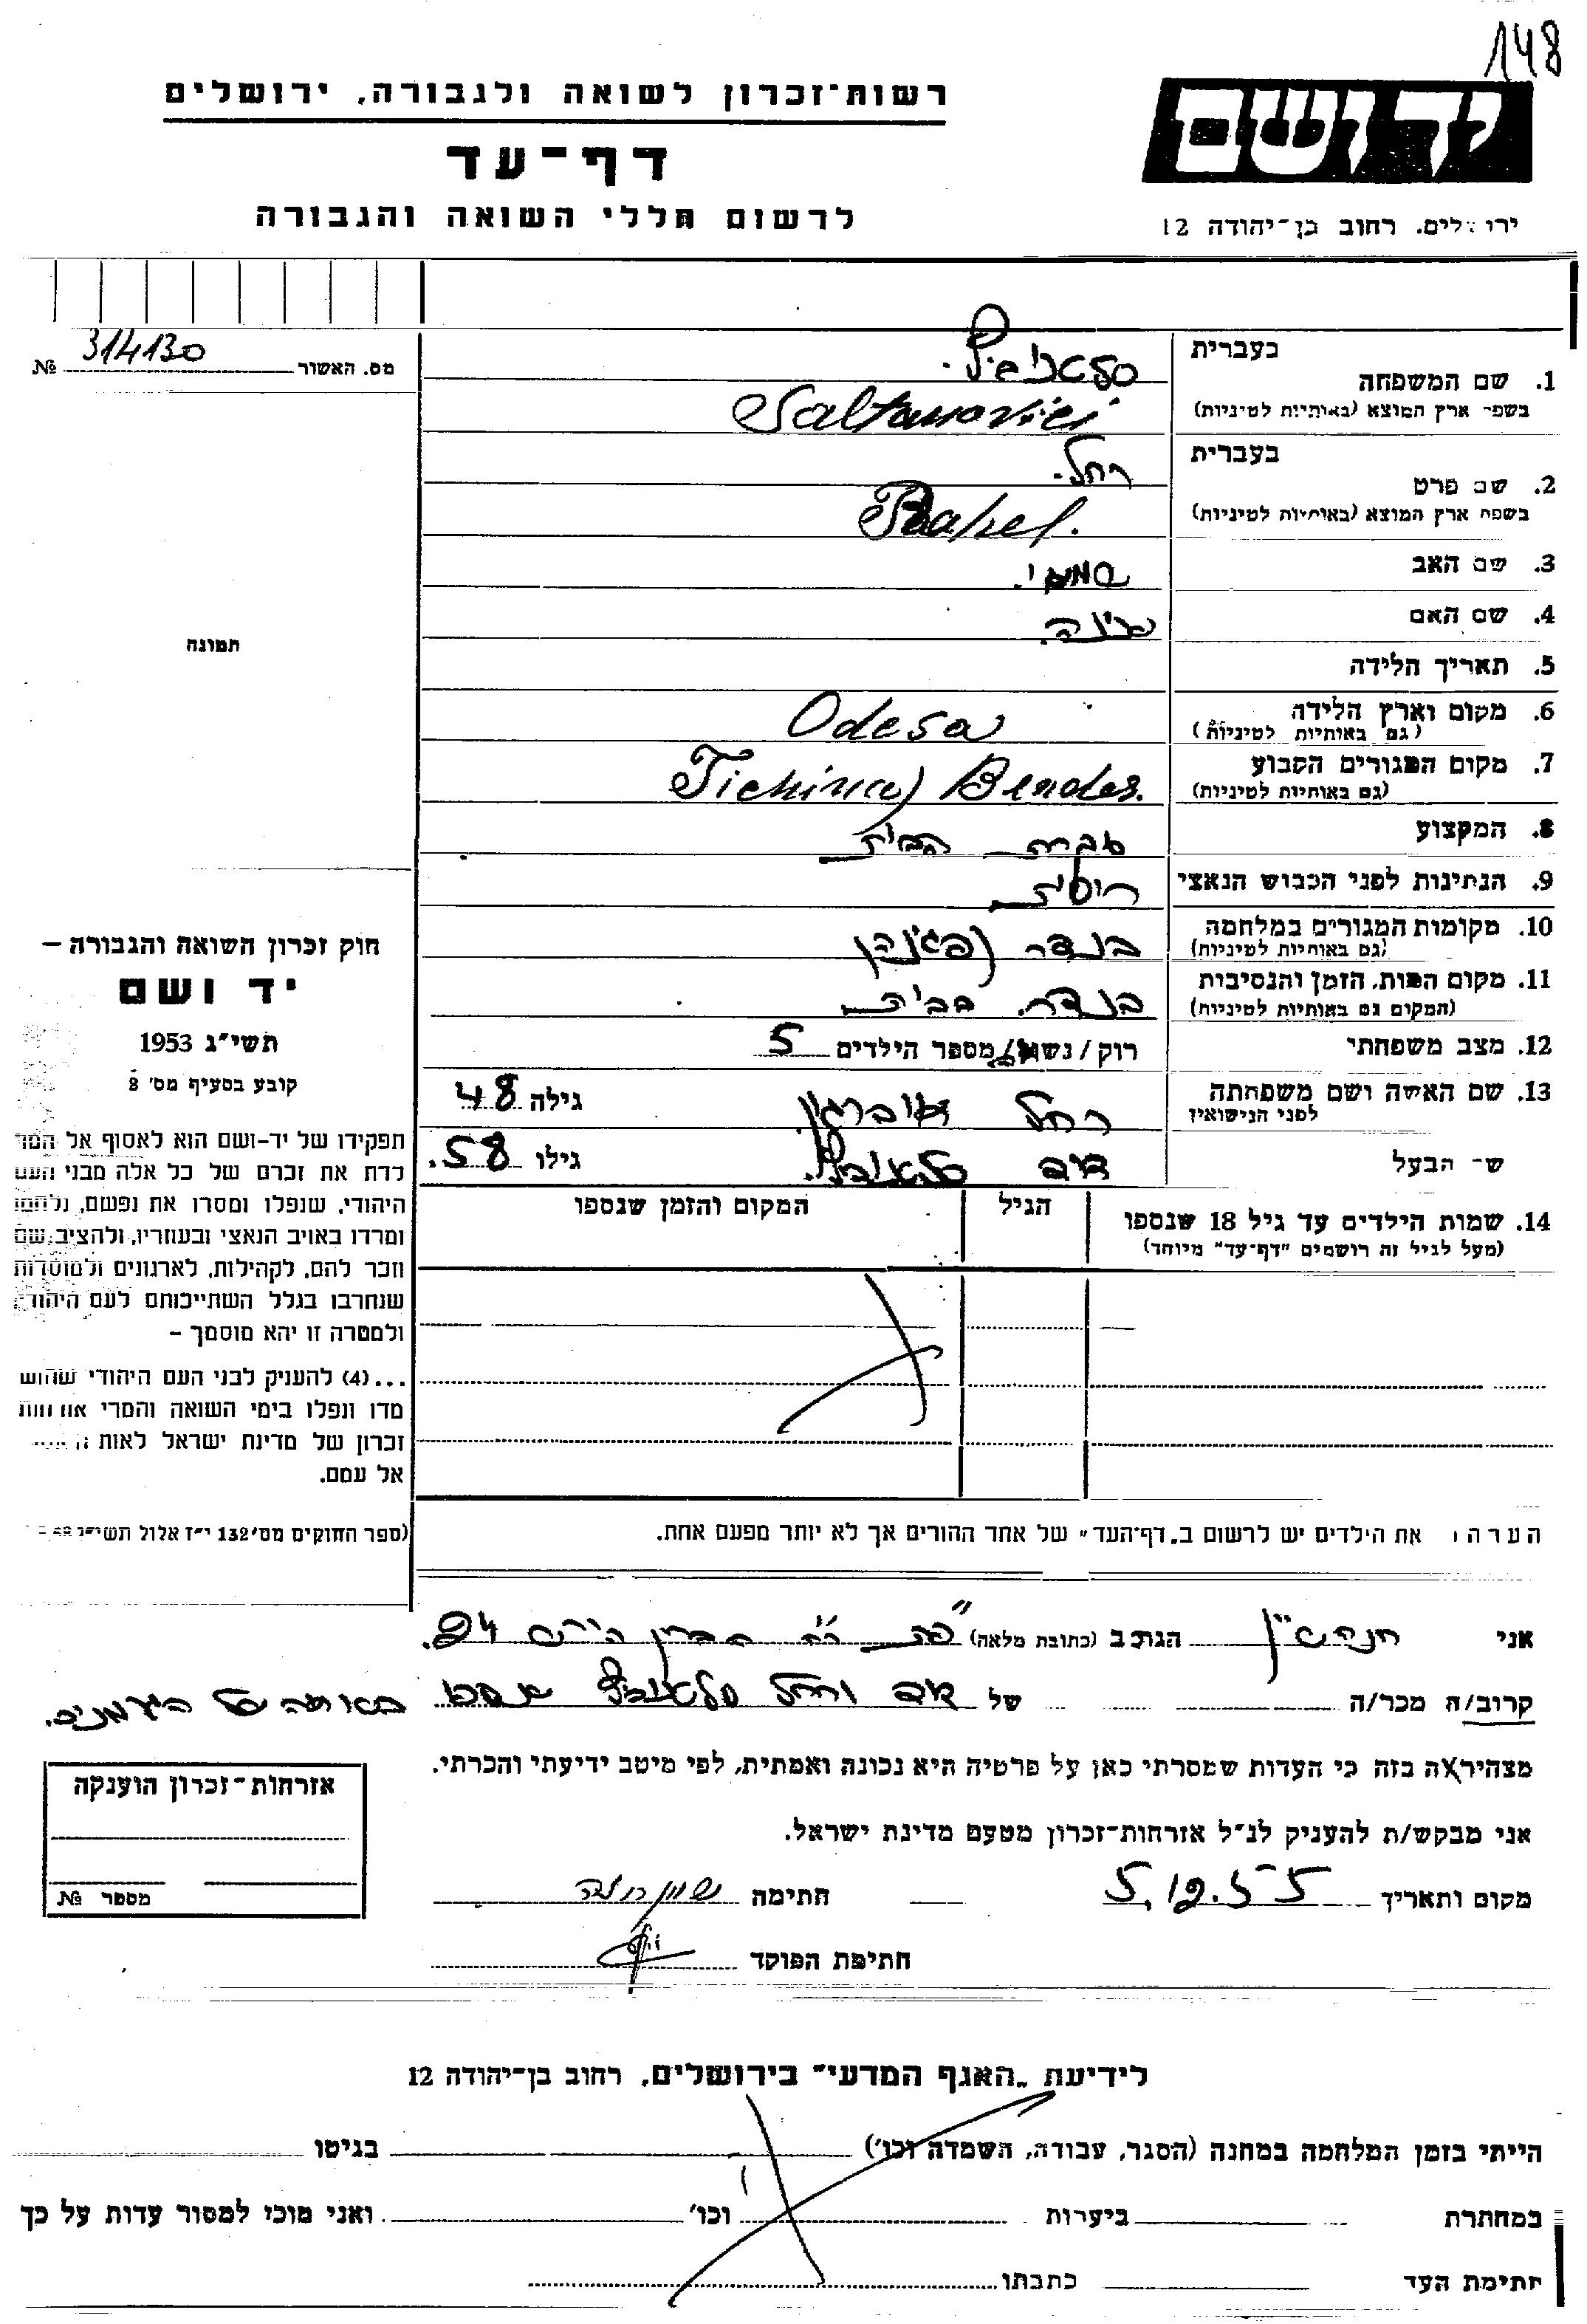 148
רשות־זכרון לשואה ולגבורה, ירושלים
דף־עד
לרשום חללי השואה והגבורה
יד ושם
ירושלים, רחוב בן־יהודה 12
מס. האשור № 314130
תמונה
1. שם המשפחה בעברית
בשפת ארץ המוצא (באותיות לטיניות) Saltanovici
2. שם פרטי בעברית רחל.
בשפת ארץ המוצא (באותיות לטיניות) Rahel.
3. שם האב
4. שם האם
5. תאריך הלידה
6. מקום וארץ הלידה Odesa
(גם באותיות לטיניות)
7. מקום המגורים הקבוע Tichina, Bender.
(גם באותיות לטיניות)
8. המקצוע עקרת הבית
9. הנתינות לפני הכבוש הנאצי רוסית
10. מקומות המגורים במלחמה בנדר
(גם באותיות לטיניות)
11. מקום המות, הזמן והנסיבות בנדר. בבית
(המקום גם באותיות לטיניות)
12. מצב משפחתי רוק/נשוי/מספר הילדים 5
13. שם האשה ושם משפחתה רחל גילה 48
לפני הנישואין
שם הבעל דוב גילו 58.
14. שמות הילדים עד גיל 18 שנספו הגיל המקום והזמן שנספו
(מעל לגיל זה רושמים "דף־עד" מיוחד)
חוק זכרון השואה והגבורה –
יד ושם
תשי"ג 1953
קובע בסעיף מס' 8
תפקידו של יד-ושם הוא לאסוף אל המו
לדת את זכרם של כל אלה מבני העם
היהודי, שנפלו ומסרו את נפשם, נלחמו
ומרדו באויב הנאצי ובעוזריו, ולהציב שם
וזכר להם, לקהילות, לארגונים ולמוסדות
שנחרבו בגלל השתייכותם לעם היהודי,
ולמטרה זו יהא מוסמך –
...(4) להעניק לבני העם היהודי שהוש
מדו ונפלו בימי השואה והמרי אזרחות
זכרון של מדינת ישראל לאות
אל עמם.
(ספר החוקים מס' 132 י"ז אלול תשי"ג
הערה: את הילדים יש לרשום ב"דף־העד" של אחד ההורים אך לא יותר מפעם אחת.
אני הגר בכ (כתובת מלאה) 24.
קרוב/ה מכר/ה של דוב ורחל
מצהיר/ה בזה כי העדות שמסרתי כאן על פרטיה היא נכונה ואמתית, לפי מיטב ידיעתי והכרתי.
אני מבקש/ת להעניק לנ"ל אזרחות־זכרון מטעם מדינת ישראל.
מקום ותאריך 5.12.55 חתימה
חתימת הפוקד
אזרחות־זכרון הוענקה
מספר №
לידיעת "האגף המדעי" בירושלים, רחוב בן־יהודה 12
הייתי בזמן המלחמה במחנה (הסגר, עבודה, השמדה וכו') בגיטו
במחתרת ביערות וכו' ואני מוכן למסור עדות על כך
חתימת העד כתבתו